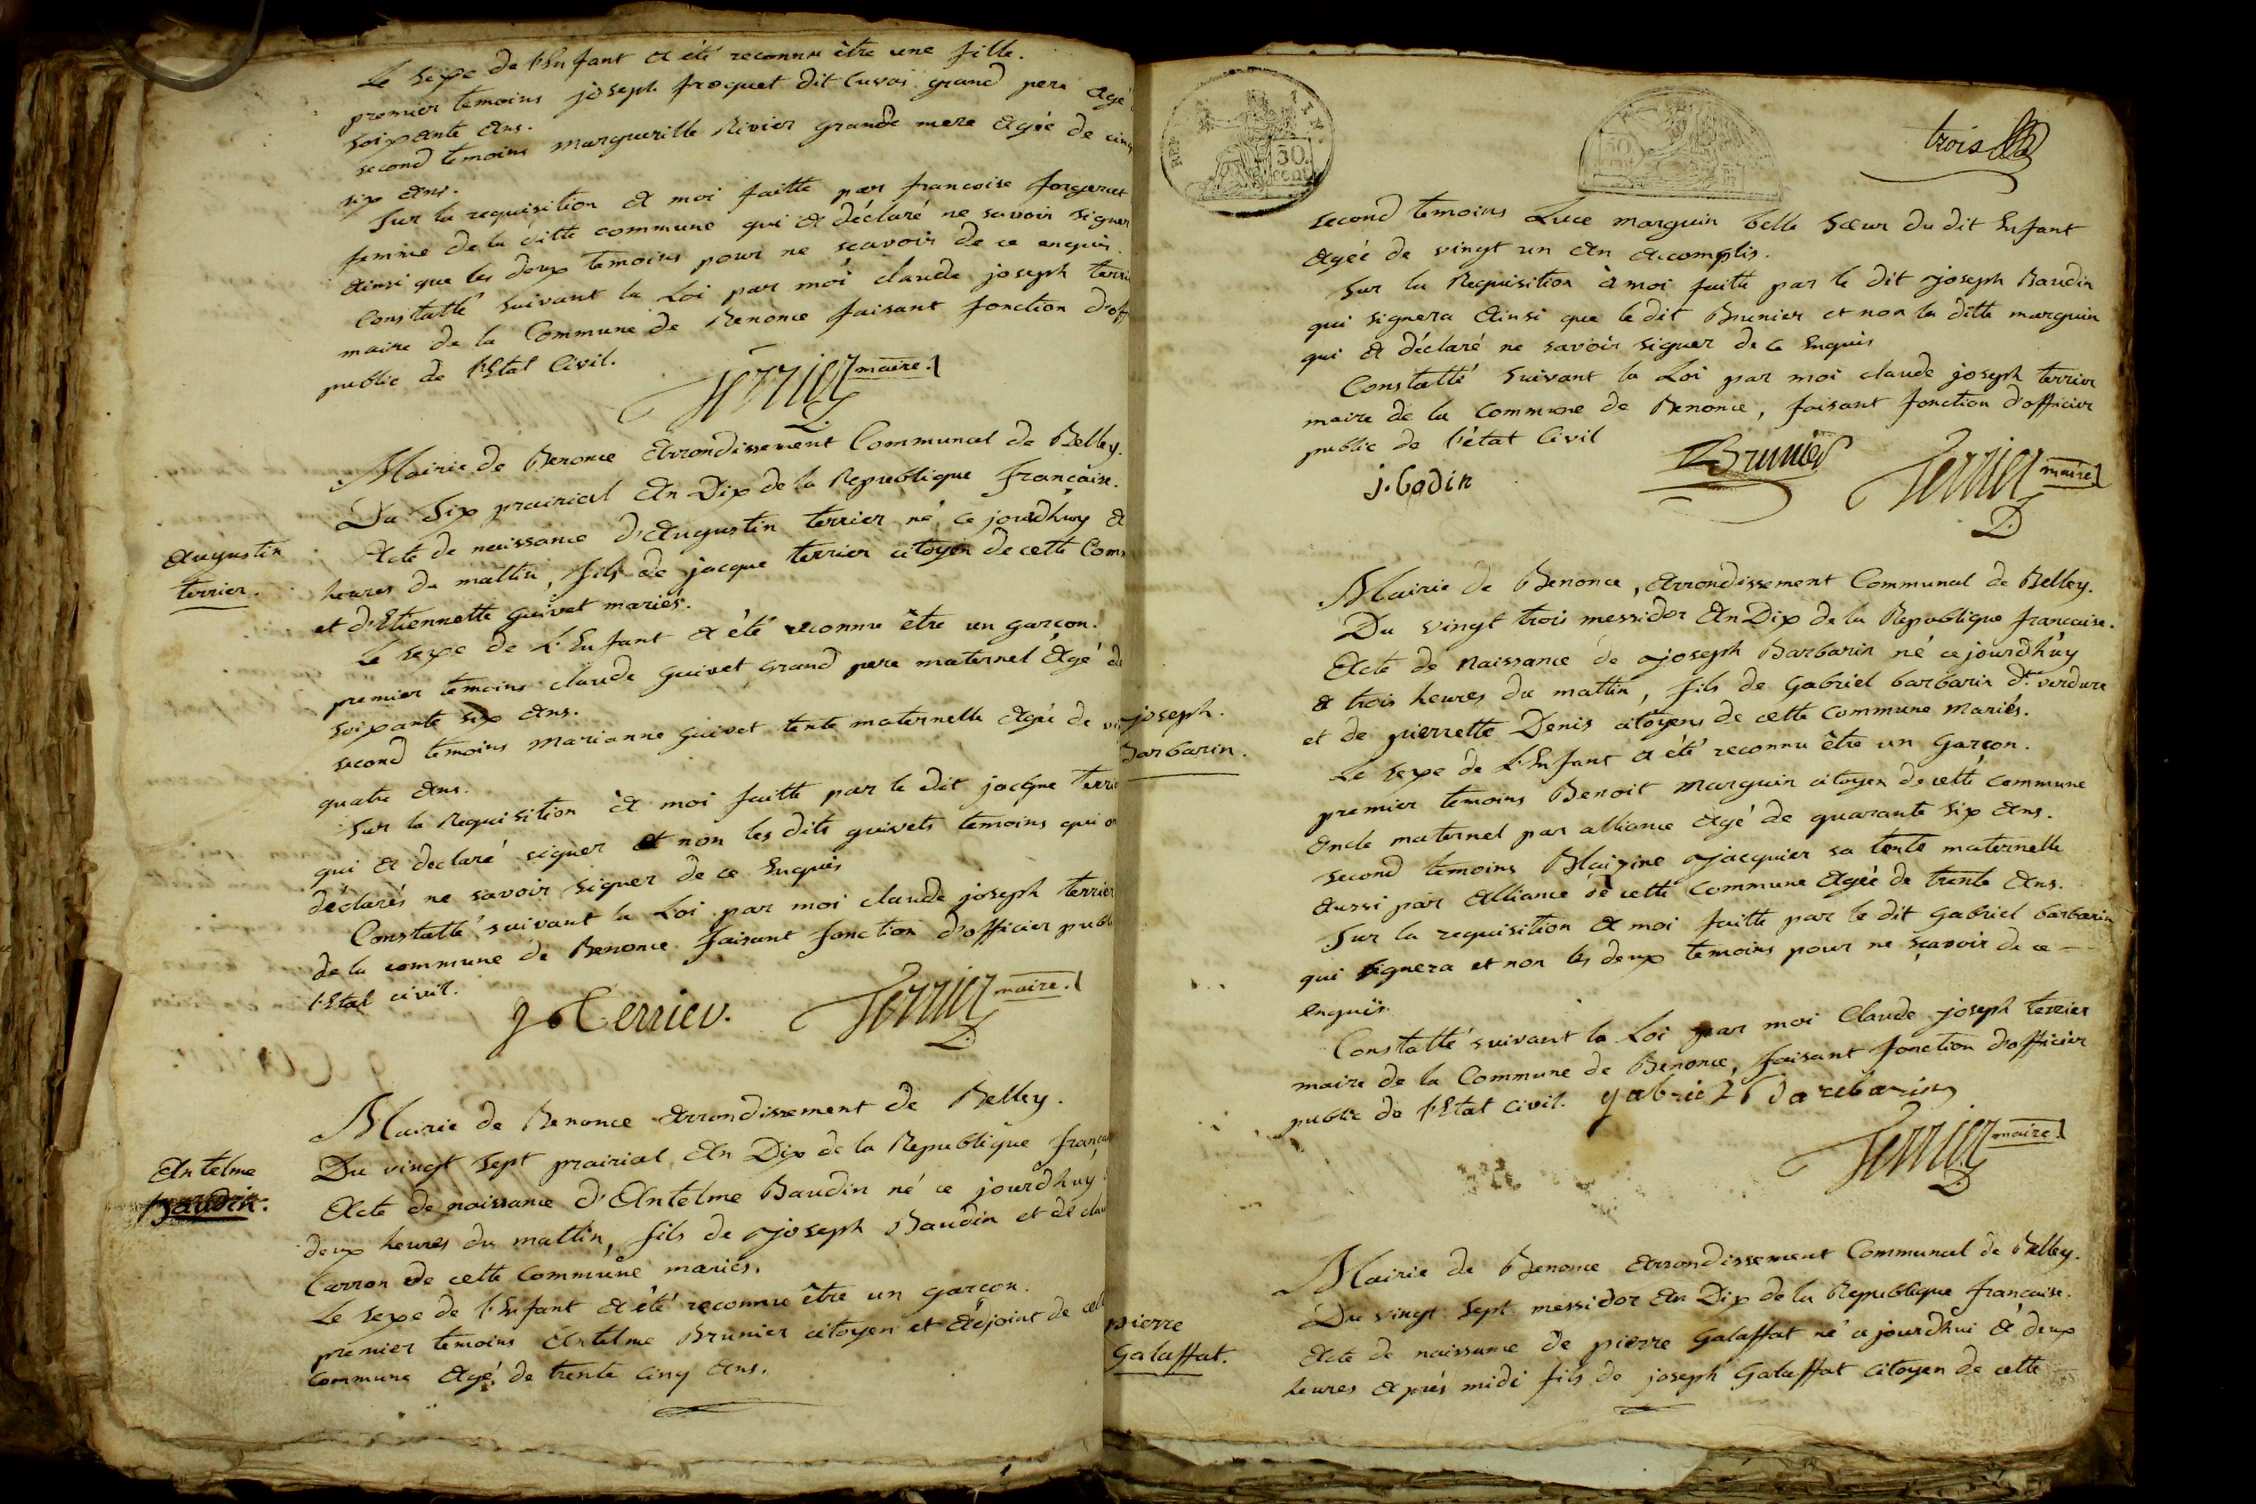 Le sexe de l'Enfant a été reconnu être une fille.
premier temoins joseph froquet dit Cuvoi grand pere agé
soixante ans.
second temoins margueritte Rivier grande mere agée de cinq
six ans.
Sur la requisition a moi faitte par francoise
femme de la ditte commune qui a déclaré ne savoir signer
ainsi que les deux temoins pour ne scavoir de ce enquis.
Constatté suivant la Loi par moi claude joseph terrier
maire de la Commune de Benonce faisant fonction d'off
public de l'Etat Civil.
Terrier maire.
Mairie de Benonce arrondissement Communal de Belley.
Du Six prairial an Dix de la Republique française.
augustin
terrier.
Acte de naissance d'augustin terrier né ce jourdhuy a
heures du mattin, fils de jacque terrier citoyen de cette Com
et d'Etiennette guivet mariés.
Le sexe de L'Enfant a été reconnu être un garçon.
premier temoins claude guivet grand pere maternel agé de
soixante six ans.
second temoins marianne guivet tente maternelle agée de
quatre ans.
Sur la Requisition a moi faitte par le dit jacque terri
qui a declaré signer et non les dits guivets temoins qui o
déclarés ne savoir signer de ce Enquis
Constatté suivant la Loi par moi claude joseph terrier
de la commune de Benonce faisant fonction d'officier publ
l'Etat civil.
j Terrier.
Terrier maire.
Mairie de Benonce arrondissement de Belley.
Antelme
Baudin.
Du vingt sept prairial an Dix de la Republique françai
Acte de naissance d'Antelme Baudin né ce jourdhuy
deux heures du mattin, fils de joseph Baudin et de clau
Carron de cette Commune mariés.
Le sexe de l'Enfant a été reconnu être un garçon.
premier temoins antelme Brunier citoyen et adjoint de cett
Commune agé de trente cinq ans.
50.
cent
50.
trois
second temoins Luce marguin belle sœur du dit Enfant
agée de vingt un an accomplis.
Sur la Requisition à moi faitte par le dit joseph Baudin
qui signera ainsi que le dit Brunier et non la ditte marguin
qui a déclaré ne savoir signer de ce Enquis
Constatté suivant la Loi par moi claude joseph terrier
maire de la commune de Benonce, faisant fonction d'officier
public de l'état Civil
j. bodin
Brunier
Terrier maire
Mairie de Benonce, arrondissement Communal de Belley.
Du vingt trois messidor an Dix de la Republique francaise.
joseph.
Barbarin.
Acte de Naissance de joseph Barbarin né ce jourdhuy
a trois heures du mattin, fils de Gabriel barbarin dt. verdure
et de pierrette Denis citoyens de cette commune Mariés.
Le sexe de L'Enfant a été reconnu être un Garçon.
premier temoins Benoit Marguin citoyen de cette commune
oncle maternel par alliance agé de quarante six ans.
second temoins Blaizine jacquier sa tente maternelle
aussi par alliance de cette Commune agée de trente ans.
Sur la requisition a moi faitte par le dit Gabriel barbarin
qui signera et non les deux temoins pour ne sçavoir de ce
enquis.
Constatté suivant la Loi par moi Claude joseph terrier
maire de la Commune de Benonce, faisant fonction d'officier
public de l'Etat civil.
gabriel barebarin
Terrier maire
Mairie de Benonce arrondissement Communal de Belley.
Du vingt sept messidor an Dix de la Republique francaise.
pierre
Galaffat.
Acte de naissance de pierre Galaffat né ce jourdhui a deux
heures après midi fils de joseph Galaffat citoyen de cette